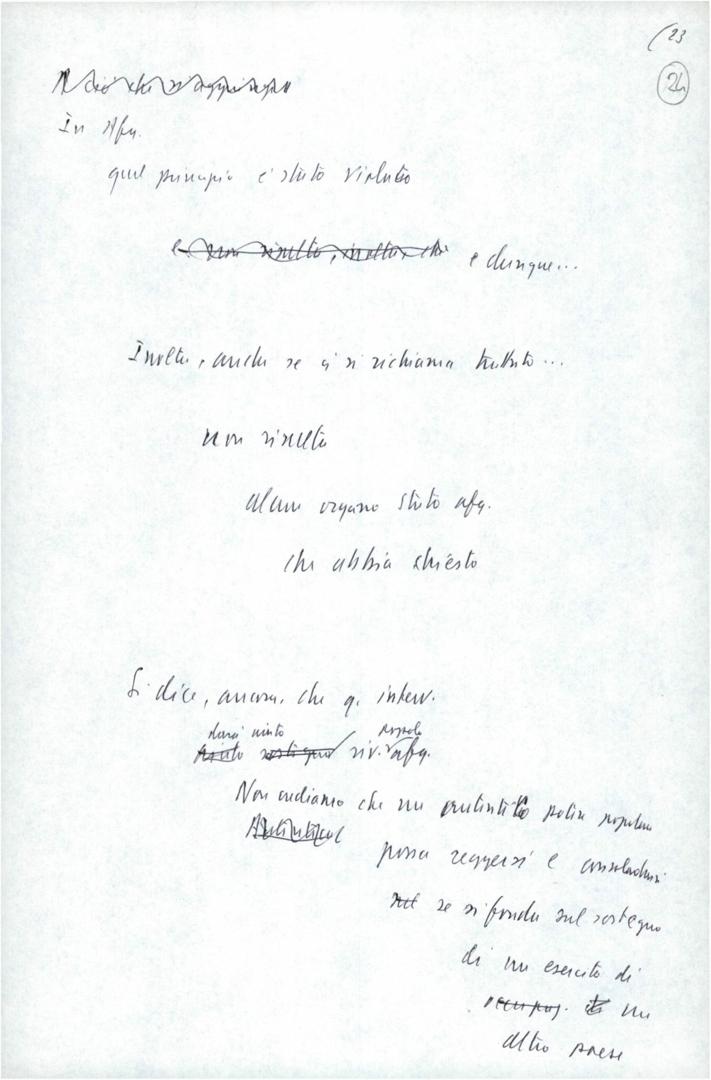 23
24
A ciò che si aggiunga
In Afg.
quel principio è stato violato
e non risulta, inoltre, che e dunque...
Inoltre, anche se ci si richiama trattato...
non risulta
alcun organo stato afg.
che abbia chiesto
Si dice, ancora, che q. interv.
darà aiuto popolo
aiuto sostegno riv. afg.
Non crediamo che un potere popolare
possa reggersi e consolidarsi
se si fonda sul sostegno
di un esercito di
occupaz. di un
altro paese